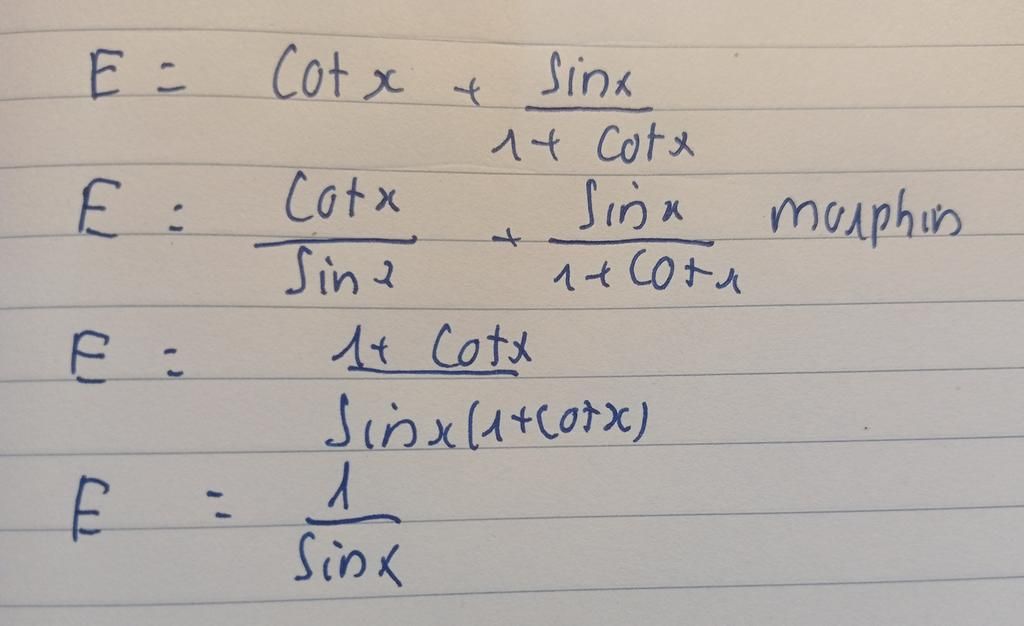 E = Cot x + Sinx / 1 + Cotx
E = Cotx / Sin x + Sinx / 1 + Cotx
E = 1 + Cotx / Sinx(1+Cotx)
E = 1 / Sinx